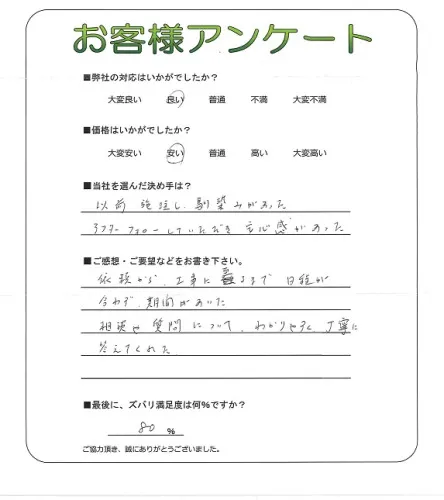 お客様アンケート
■弊社の対応はいかがでしたか？
大変良い 良い 普通 不満 大変不満
■価格はいかがでしたか？
大変安い 安い 普通 高い 大変高い
■当社を選んだ決め手は？
以前 施工し、馴染みがあった
アフターフォローしていただき 安心感があった
■ご感想・ご要望などをお書き下さい。
依頼から、工事に至るまで 日程が
合わず、期間があいた
相談や質問について、わかりやすく、丁寧に
答えてくれた
■最後に、ズバリ満足度は何％ですか？
80 ％
ご協力頂き、誠にありがとうございました。